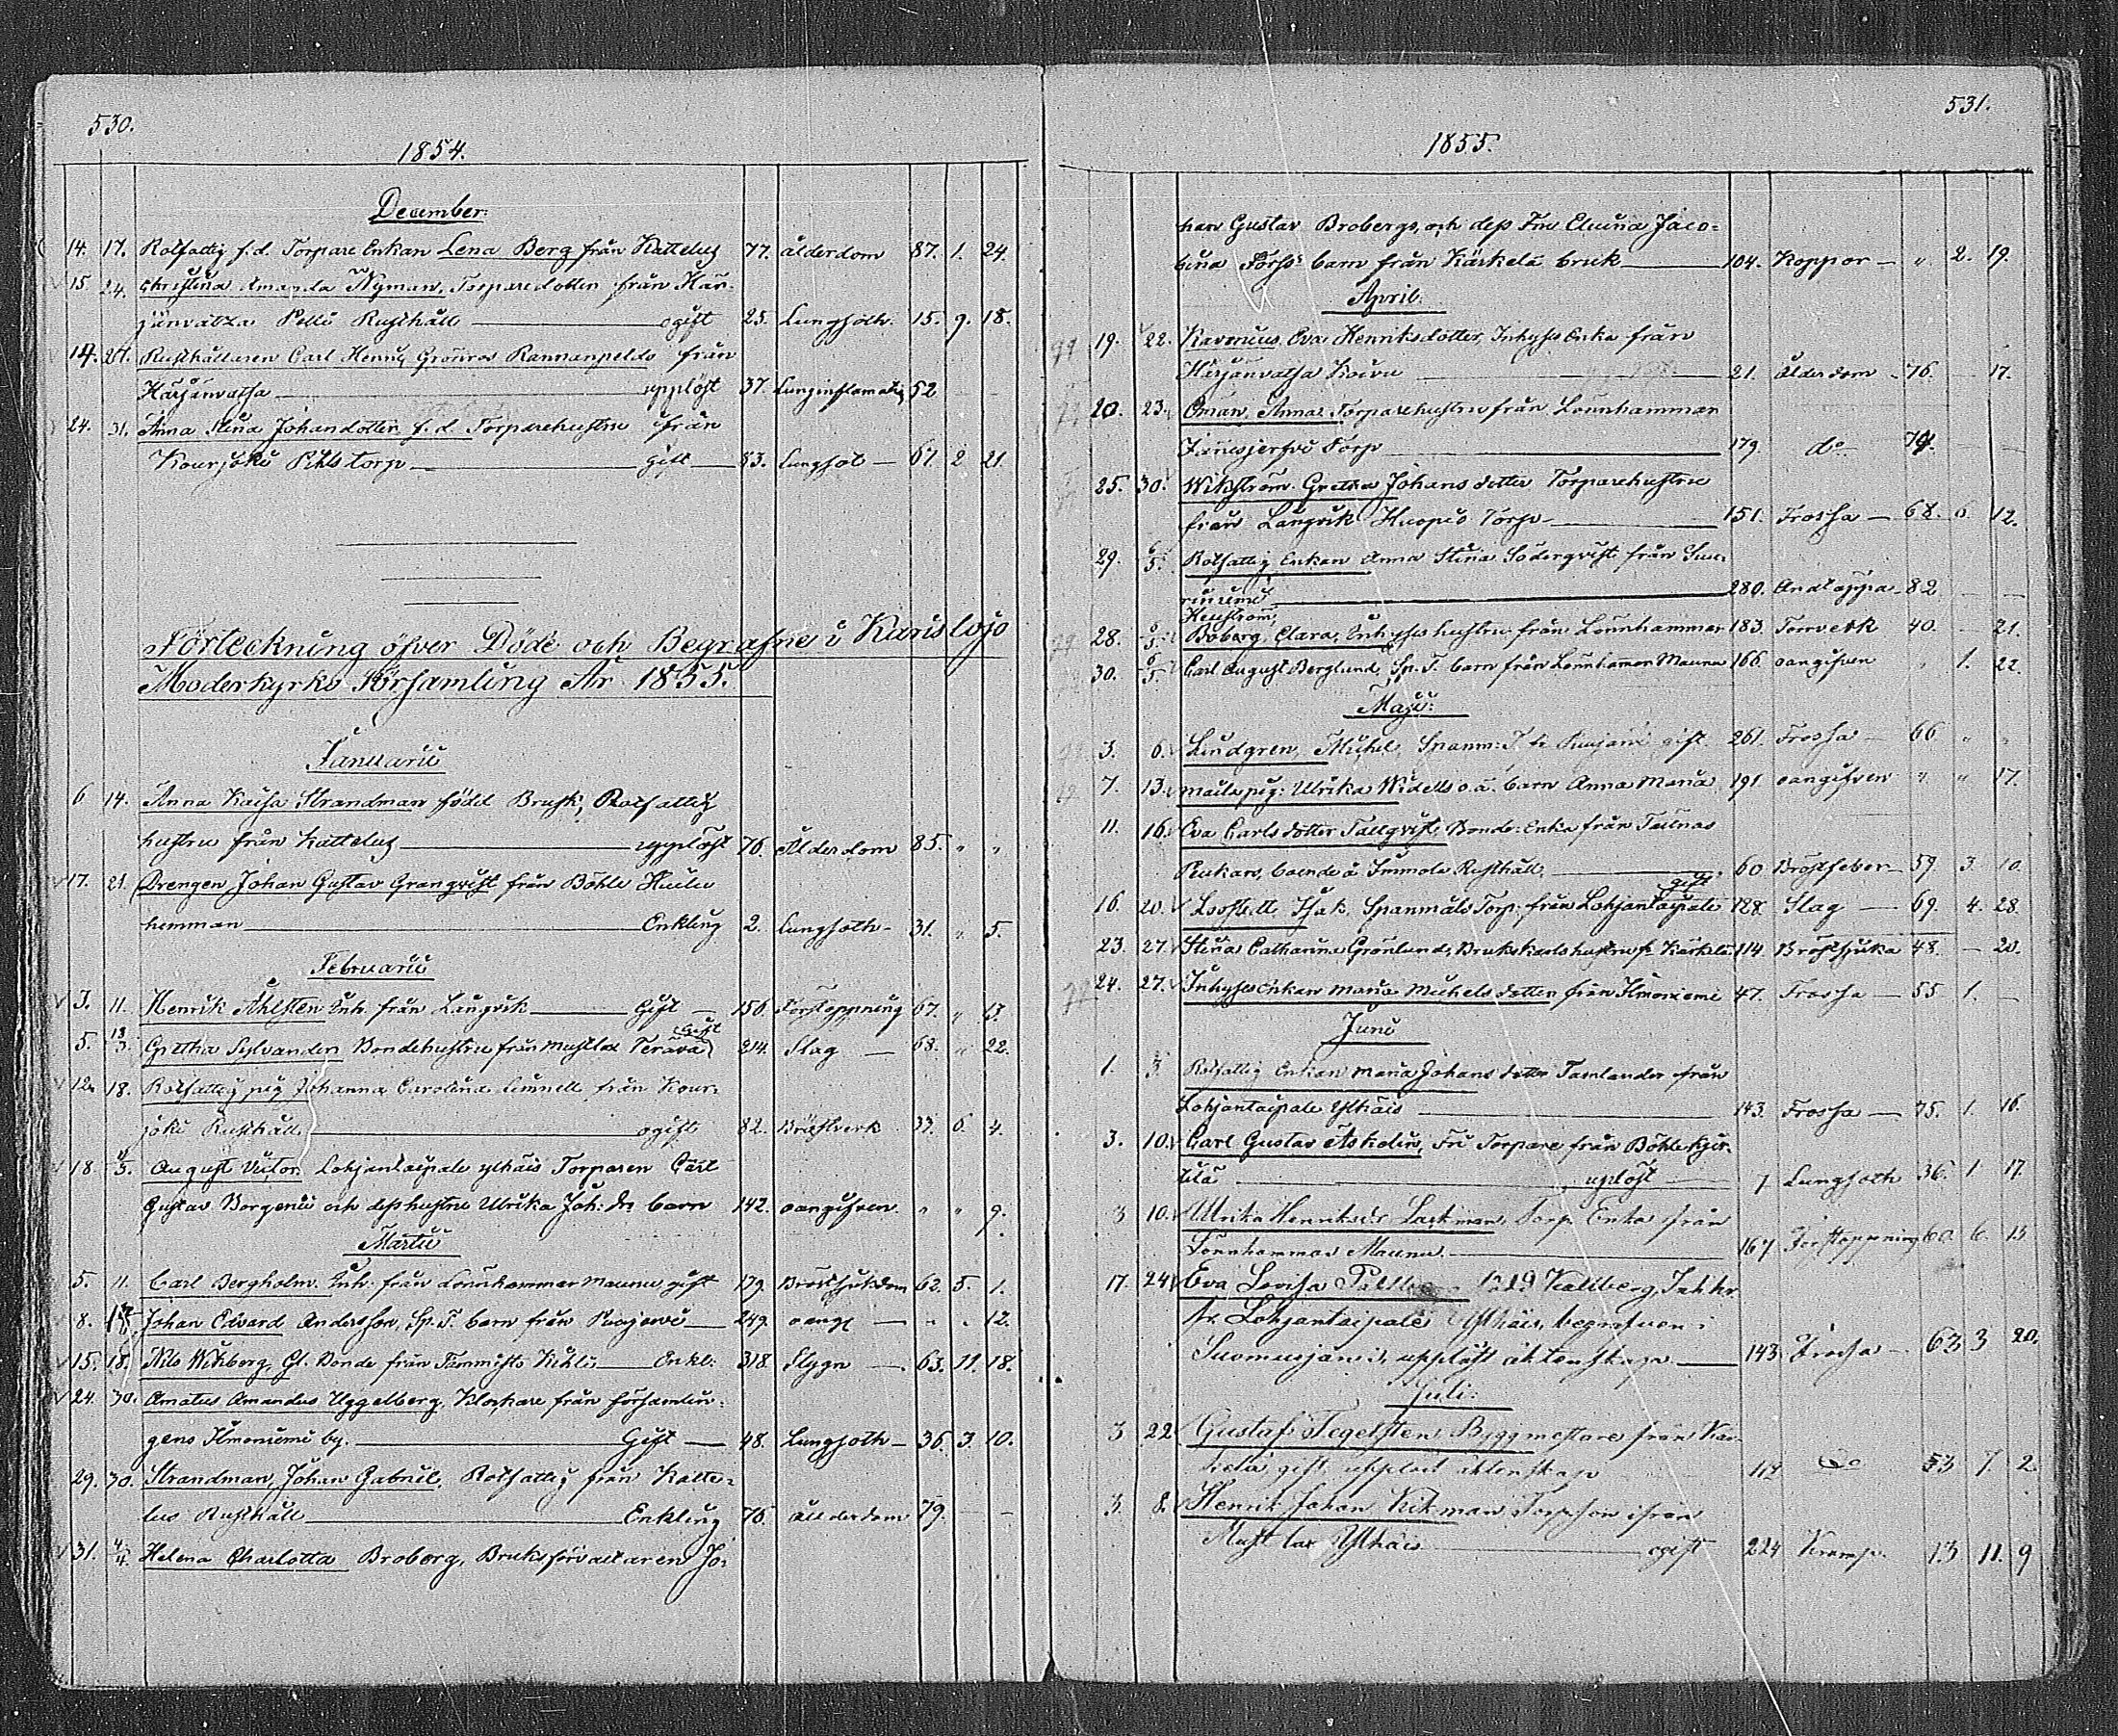 530.
1854.
December.
14. 17. Rotfattig f.d. Torpare Enkan Lena Berg från Kattelus 77. ålderdom 87. 1. 24.
15 24. Christina Amanda Nyman, Torparedotter från Här-
jänvatsa Pelli Rusthåll ogift 25. Lungsoth. 15. 9. 18.
14. Rusthållaren Carl Henric Grönros Rannanpeldo från
Härjänvatsa upplöst 37. Lunginflamatig 52
24. 31. Anna Stina Johansdotter f.d. Torparehustru från
Kourjoki Pihls torp gift 83. Lungsot 67. 2 21.
Förteckning öfver Döde och Begrafne i Karislojo
Moderkyrko Församling År 1855.
Januarii
6. 14. Anna Kaisa Strandman född Brusk, Rotfattig
hustru från Kattelus upplöst 76. Ålderdom 85. " "
17. 21. Drengen Johan Gustav Granqvist från Böhle
hemman Enkling 2. Lungsoth 31. " 5.
Februarii
3. 11. Henrik Åhlsten Inh. från Långvik Gift 150 Förstoppning 67. " 13.
5. Gretha Sylvander Bondehustru från Mustlax Gift 214. Slag 68. " 22.
12. 18. Rotfattig pig Johanna Carolina Limnell från Kour-
joki Rusthåll ogift 82. Bröstverk 37. 6. 4.
18. August Victor Lohjantaipale ylhäis Torparen Carl
Gustav Borgenii och dess hustru Ulrika Joh: dr barn 142. oangifven " " 9.
Martii
5. 11. Carl Bergholm Inh. från Lönnhammar Maunu gift 179. Bröstsjukdom 62. 5. 1.
8. Johan Edvard Andersson, Sp. T. barn från 249. oang " " 12.
15. 18. Nils Wikberg, Gl. Bonde från Tammisto Enkl: 318. Flygn 63. 11. 18.
24. 30. Amatus Amandus Uggelberg, Klockare från församlin-
gens Ilmoniemi by. Gift 48. Lungsoth 36. 3. 10.
29. 30. Strandman, Johan Gabriel, Rotfattig från Katte-
lus Rusthåll Enkling 76. ålderdom 79. — —
31. 4/4. Helena Charlotta Broberg, Bruksförvaltaren Jo-
531.
1855.
han Gustav Brobergs, och dess Fru Elmina Jaco-
bina barn från Kärkelä bruk 104. Koppor " 2. 19.
April.
19. 22. Eva Henriksdotter, Inhyses Enka från
Härjänvatsa Koivu 21. Ålderdom 76. 17.
20. 23. Öman, Anna Torparehustru från Lönnhammar
Torp 179. do 74.
25. 30. Wikström Gretha Johansdotter Torparehustru
från Långvik Huopio Torp 151. Frossa 68. 6. 12.
29. 6/5. Rotfattig Enkan Anna Stina Söderqvist från Suu-
riniemi 280. Andtäppa 82
28. 6/5. Boberg, Clara, Inhyses hustru från Lönnhammar 183. Torrverk 40. 21.
30. 6/5. Carl August Berglund, Sp. T. barn från Lönnhammar Maunu 166. oangifven " 1. 22.
Maji:
3. 6. Lindgren, Michel, Spanm: T. gift 261. Frossa 66 " "
7. 13. pig: Ulrika Widells o.ä. barn Anna Maria 191 oangifven " " 17.
11. 16. Eva Carlsdotter Tallqvist, Bonde: Enka från
boende å Immola Rusthåll 60 Bröstfeber 59. 3. 10.
16. 20. Isak, Spanmåls Torp. från Lohjantaipale gift 128. Slag 69. 4. 28.
23. 27. Stina Catharina Grönlund, Brukskarls hustru fr. Kärkelä 114. Bröstsjuka 48. — 20.
24. 27. Inhyses Enkan Maria Michelsdotter från Ilmoniemi 47. Frossa 55 1. —
Juni
1. 3 Rotfattig Enkan Maria Johansdotter Tamlander från
Lohjantaipale Ylhäis 143. Frossa 75. 1. 16.
3. 10. Carl Gustav Askelin, Torpare från Böhle
uplöst 7 Lungsoth 36. 1 17
3 10. Ulrika Henriksdr Lackman, Torp. Enka från
Lönnhammar Maunu. 167 Förstoppning 60. 6. 13
17. 24 Eva Lovisa Kallberg, Inh. hr
fr. Lohjantaipale Ylhäis, begrafven i
Suomusjärvi, upplöst äktenskap 143 Frossa 63 3 20.
Juli:
3 22 Gustaf Tegelsten Byggmestare från Kär-
kelä gift upplöst äktenskap 117 do 53 7. 2
3 8. Henrik Johan Wikman Torpson ifrån
Mustlax Ylhäis ogift 224 Kramp. 13 11. 9